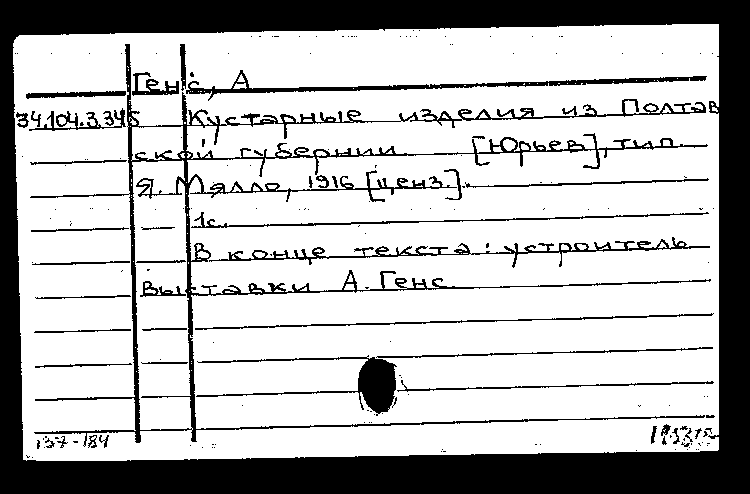 Генс, А
34.104.3.345 Кустарные изделия из Полтав
ской губернии [Юрьев], тип.
Я. Мялло, 1916 [ценз.].
1с.
В конце текста: устроитель
выставки А. Генс.
137-184